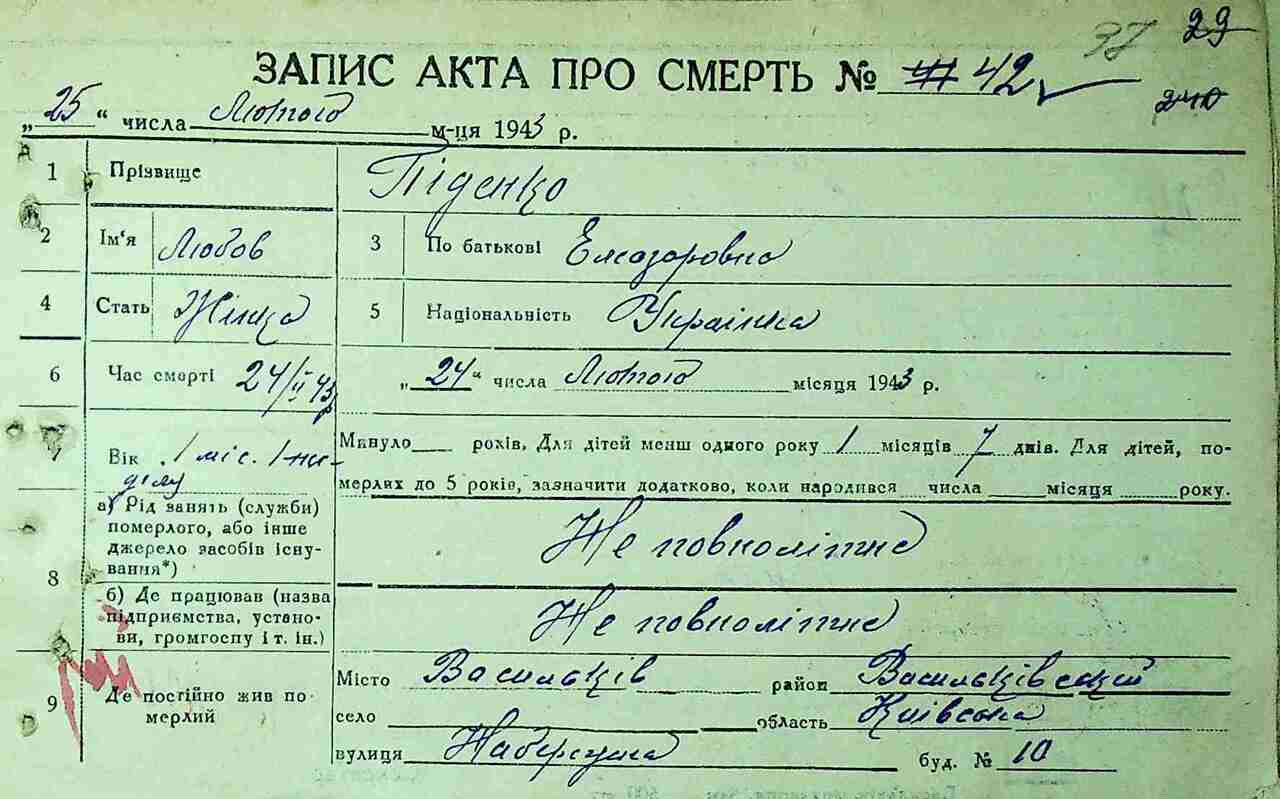 37 29
ЗАПИС АКТА ПРО СМЕРТЬ № 42
240
„25“ числа Лютого м-ця 1943 р.
1 Прізвище Піденко
2 Ім'я Любов 3 По батькові
4 Стать Жінка 5 Національність Украінка
6 Час смерті 24/II 43 р „24“ числа Лютого місяця 1943 р.
7 Вік 1 міс. 1 не- Минуло рохів. Для дітей менш одного року 1 місяців 7 днів. Для дітей, по-
ділу мерлих до 5 рохів, зазначити додатково, коли народився числа місяця року.
8 а) Рід занять (служби)
померлого, або інше
джерело засобів існу-
вання*)
Не повнолітне
б) Де працював (назва
підприємства, устано-
ви, громгоспу і т. ін.)
Не повнолітне
9 Де постійно жив по-
мерлий
Місто Васильків район Васильківський
село область Київська
вулиця Набережна буд. № 10